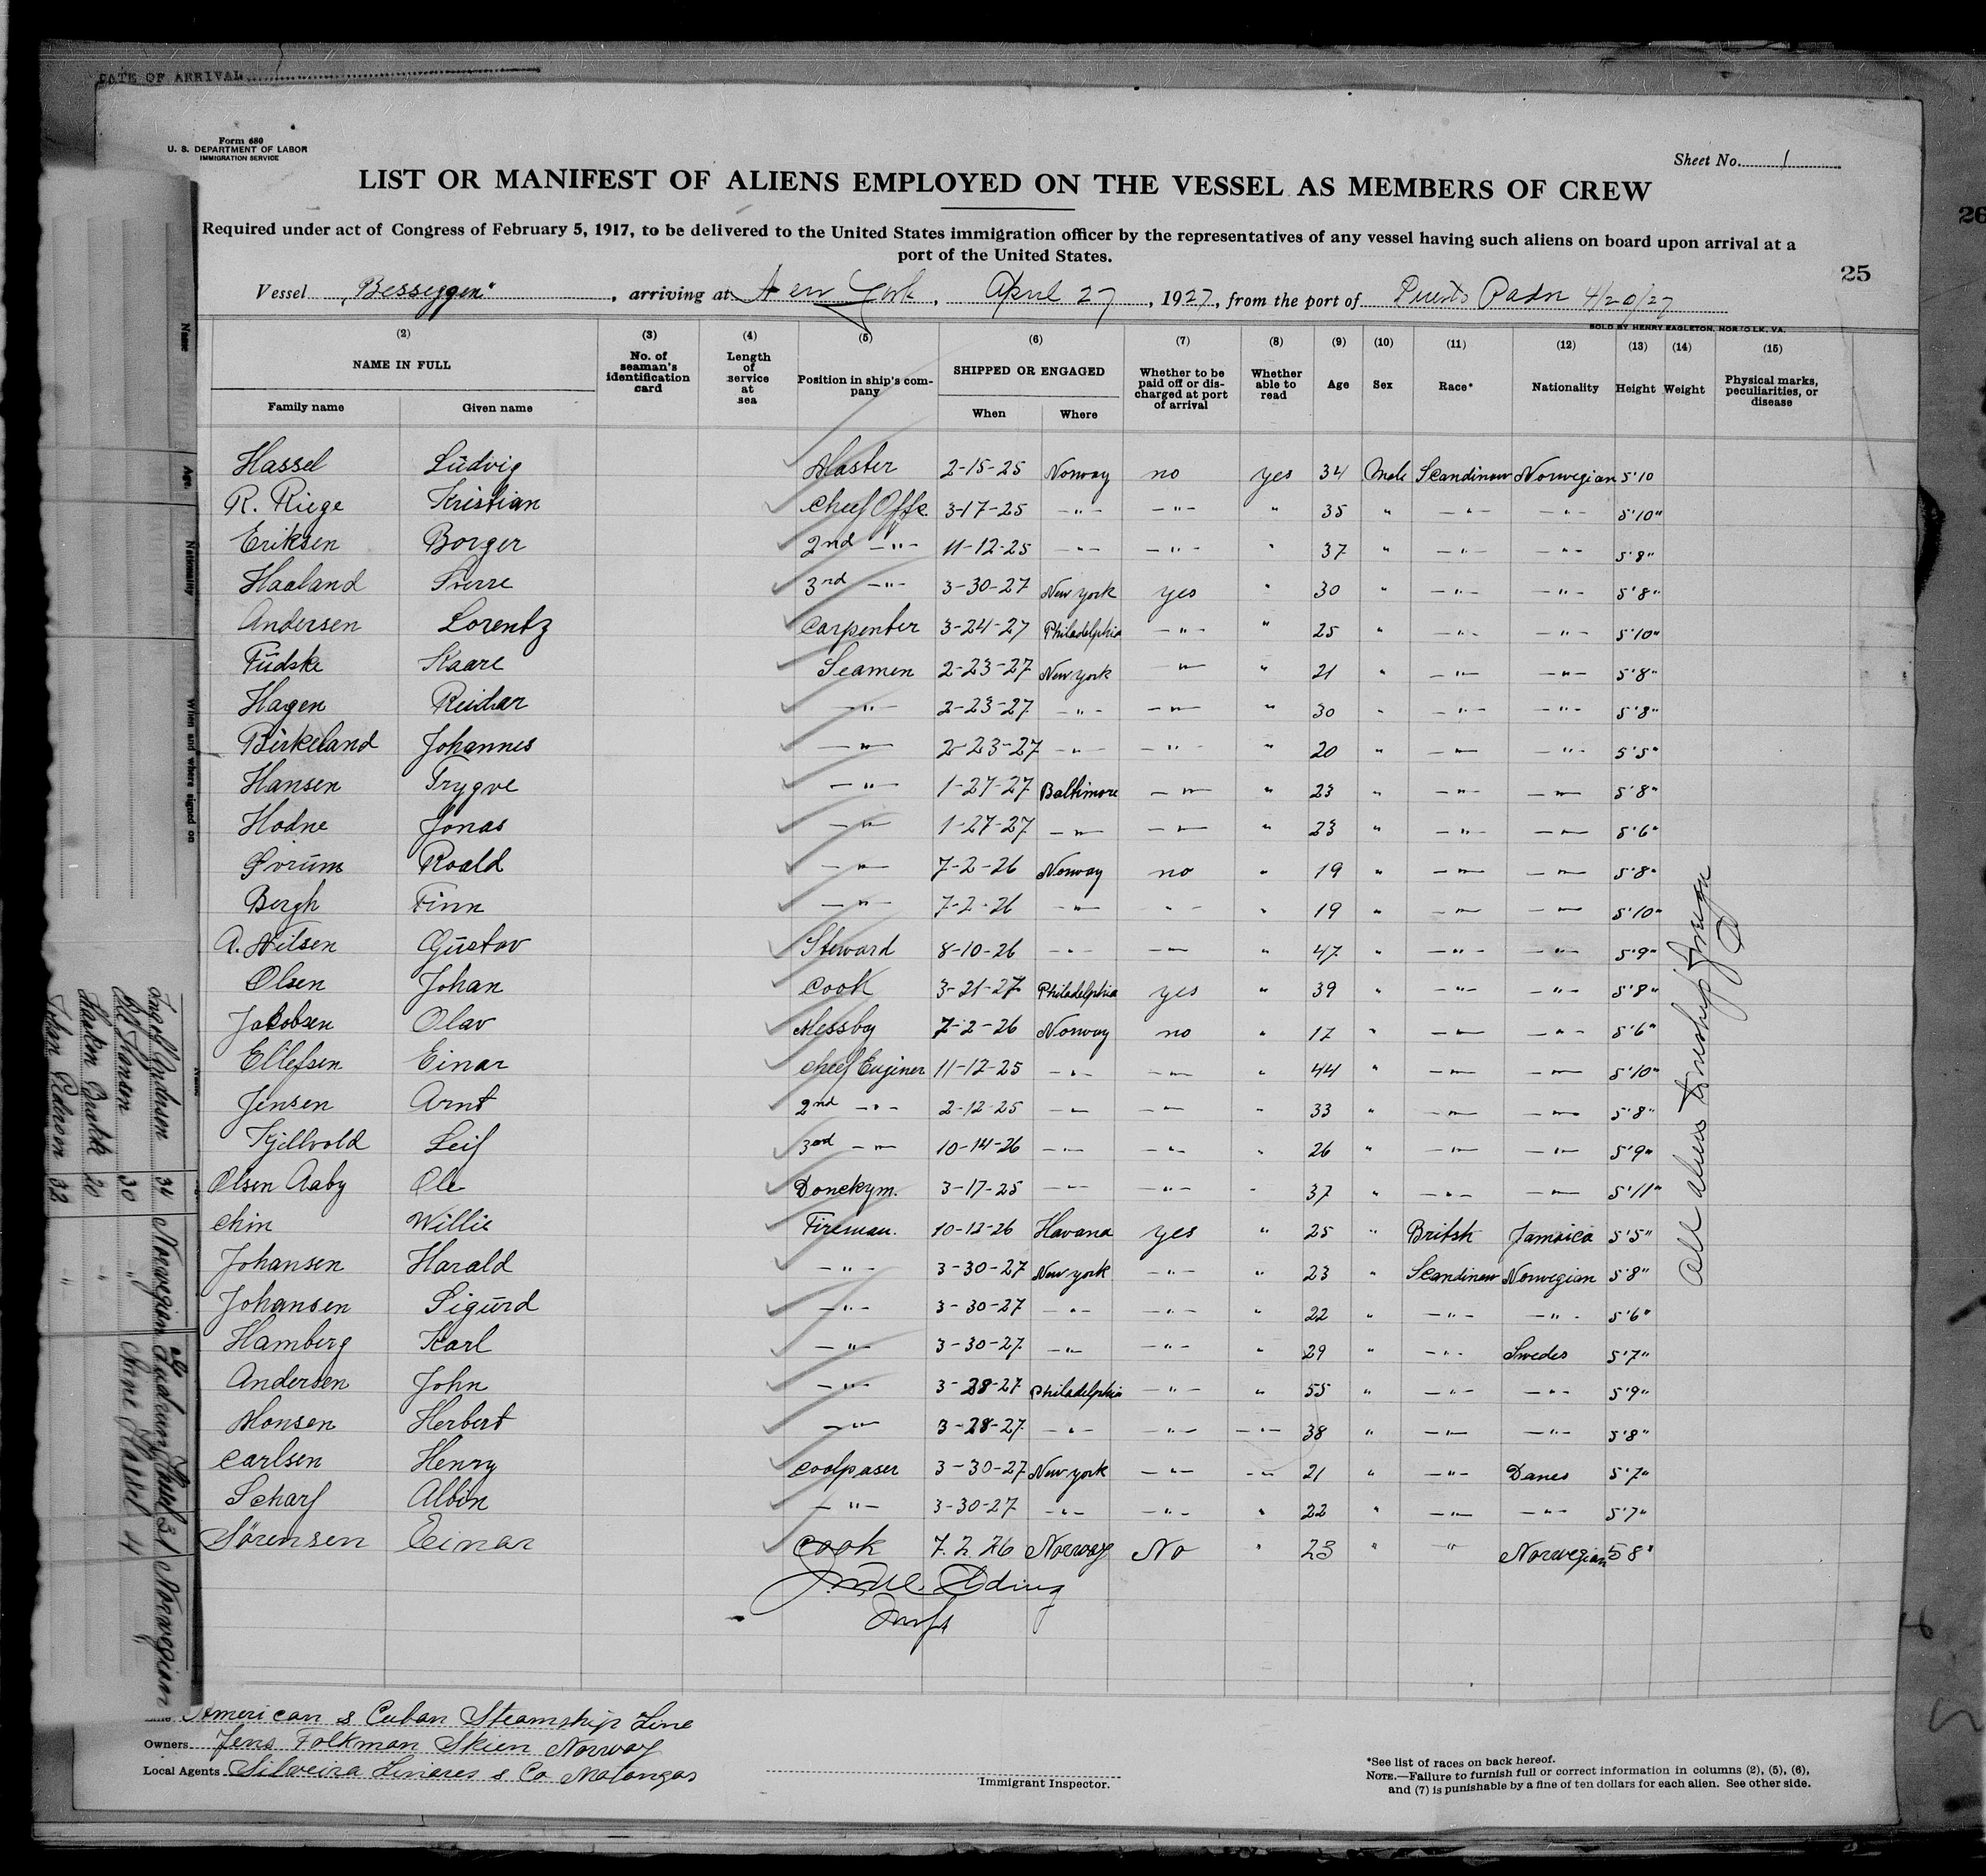 DATE OF ARRIVAL
Form 680
U. S. DEPARTMENT OF LABOR
IMMIGRATION SERVICE
Sheet No. 1
LIST OR MANIFEST OF ALIENS EMPLOYED ON THE VESSEL AS MEMBERS OF CREW
Required under act of Congress of February 5, 1917, to be delivered to the United States immigration officer by the representatives of any vessel having such aliens on board upon arrival at a
port of the United States.
25
26
Vessel „Besseggen", arriving at New York, April 27, 1927, from the port of Puerto Padre 4/20/27
SOLD BY HENRY EAGLETON, NORFOLK, VA.
(2) (3) (4) (5) (6) (7) (8) (9) (10) (11) (12) (13) (14) (15)
NAME IN FULL No. of seaman's identification card Length of service at sea Position in ship's company SHIPPED OR ENGAGED Whether to be paid off or discharged at port of arrival Whether able to read Age Sex Race* Nationality Height Weight Physical marks, peculiarities, or disease
Family name Given name When Where
Hassel Ludvig Master 2-15-25 Norway no yes 34 Male Scandinav Norwegian 5'10
R. Riege Kristian Cheef Offc. 3-17-25 -"- -"- " 35 " -"- -"- 5'10"
Eriksen Borger 2nd -"- 11-12-25 -"- -"- " 37 " -"- -"- 5'8"
Haaland Sverre 3rd -"- 3-30-27 New york yes " 30 " -"- -"- 5'8"
Andersen Lorentz Carpenter 3-24-27 Philadelphia -"- " 25 " -"- -"- 5'10"
Fudske Kaare Seamen 2-23-27 New york -"- " 21 " -"- -"- 5'8"
Hagen Reidar -"- 2-23-27 -"- -"- " 30 " -"- -"- 5'8"
Birkeland Johannes -"- 2-23-27 -"- -"- " 20 " -"- -"- 5'5"
Hansen Trygve -"- 1-27-27 Baltimore -"- " 23 " -"- -"- 5'8"
Hodne Jonas -"- 1-27-27 -"- -"- " 23 " -"- -"- 5'6"
Roald -"- 7-2-26 Norway no " 19 " -"- -"- 5'8"
Bergh Finn -"- 7-2-26 -"- -"- " 19 " -"- -"- 5'10"
A. Nilsen Gustav Steward 8-10-26 -"- -"- " 47 " -"- -"- 5'9"
Olsen Johan Cook 3-21-27 Philadelphia yes " 39 " -"- -"- 5'8"
Jacobsen Olav Messboy 7-2-26 Norway no " 17 " -"- -"- 5'6"
Ellefsen Einar Cheef Enginer 11-12-25 -"- -"- " 44 " -"- -"- 5'10"
Jensen Arnt 2nd -"- 2-12-25 -"- -"- " 33 " -"- -"- 5'8"
Kjellvold Leif 3rd -"- 10-14-26 -"- -"- " 26 " -"- -"- 5'9"
Olsen Aaby Ole Donckym. 3-17-25 -"- -"- " 37 " -"- -"- 5'11"
Chin Willie Fireman. 10-12-26 Havana yes " 25 " Britsh Jamaica 5'5"
Johansen Harald -"- 3-30-27 New york -"- " 23 " Scandinav Norwegian 5'8"
Johansen Sigurd -"- 3-30-27 -"- -"- " 22 " -"- -"- 5'6"
Hamberg Karl -"- 3-30-27 -"- -"- " 29 " -"- Swedes 5'7"
Andersen John -"- 3-28-27 Philadelphia -"- " 55 " -"- -"- 5'9"
Monsen Herbert -"- 3-28-27 -"- -"- -"- 38 " -"- -"- 5'8"
Carlsen Henry Coolpaser 3-30-27 New york -"- -"- 21 " -"- Danes 5'7"
Scharf Albin -"- 3-30-27 -"- -"- " 22 " -"- -"- 5'7"
Sörensen Einar Cook 7.2.26 Norway No " 23 " " Norwegian 5 8"
Insp
American & Cuban Steamship Line
Owners Jens Folkman Skien Norway
Local Agents Silveira Linares & Co Matanzas
Immigrant Inspector.
*See list of races on back hereof.
NOTE.—Failure to furnish full or correct information in columns (2), (5), (6),
and (7) is punishable by a fine of ten dollars for each alien. See other side.
Name
Age
Nationality
When and where signed on
Ingolf Andersen 34 Norwegian
Hansen 30 "
Haakon 20 "
Johan Pedersen 32 "
Gudrun Hassel 31 Norwegian
Hassel 4 "